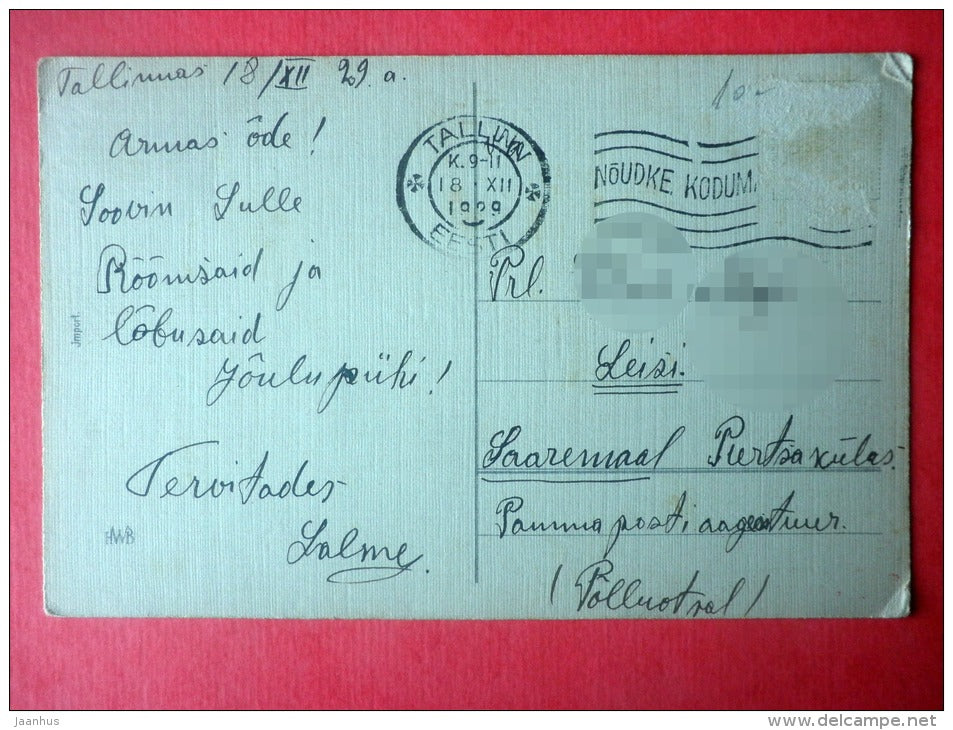 Tallinnas 18/XII 29.a.
Armas õde!
Soovin Sulle
Rõõmsaid ja
lõbusaid
Jõulupühi!
Tervitades
Salme.
Jmport.
HWB
10.-
TALLINN
K. 9-11
18 XII
1929
EESTI
NÕUDKE KODUM
Prl.
Leisi.
Saaremaal Purtsakülas.
Pamma postiaagentuur.
(Põlluotsal)
jaanhus
www.delcampe.net